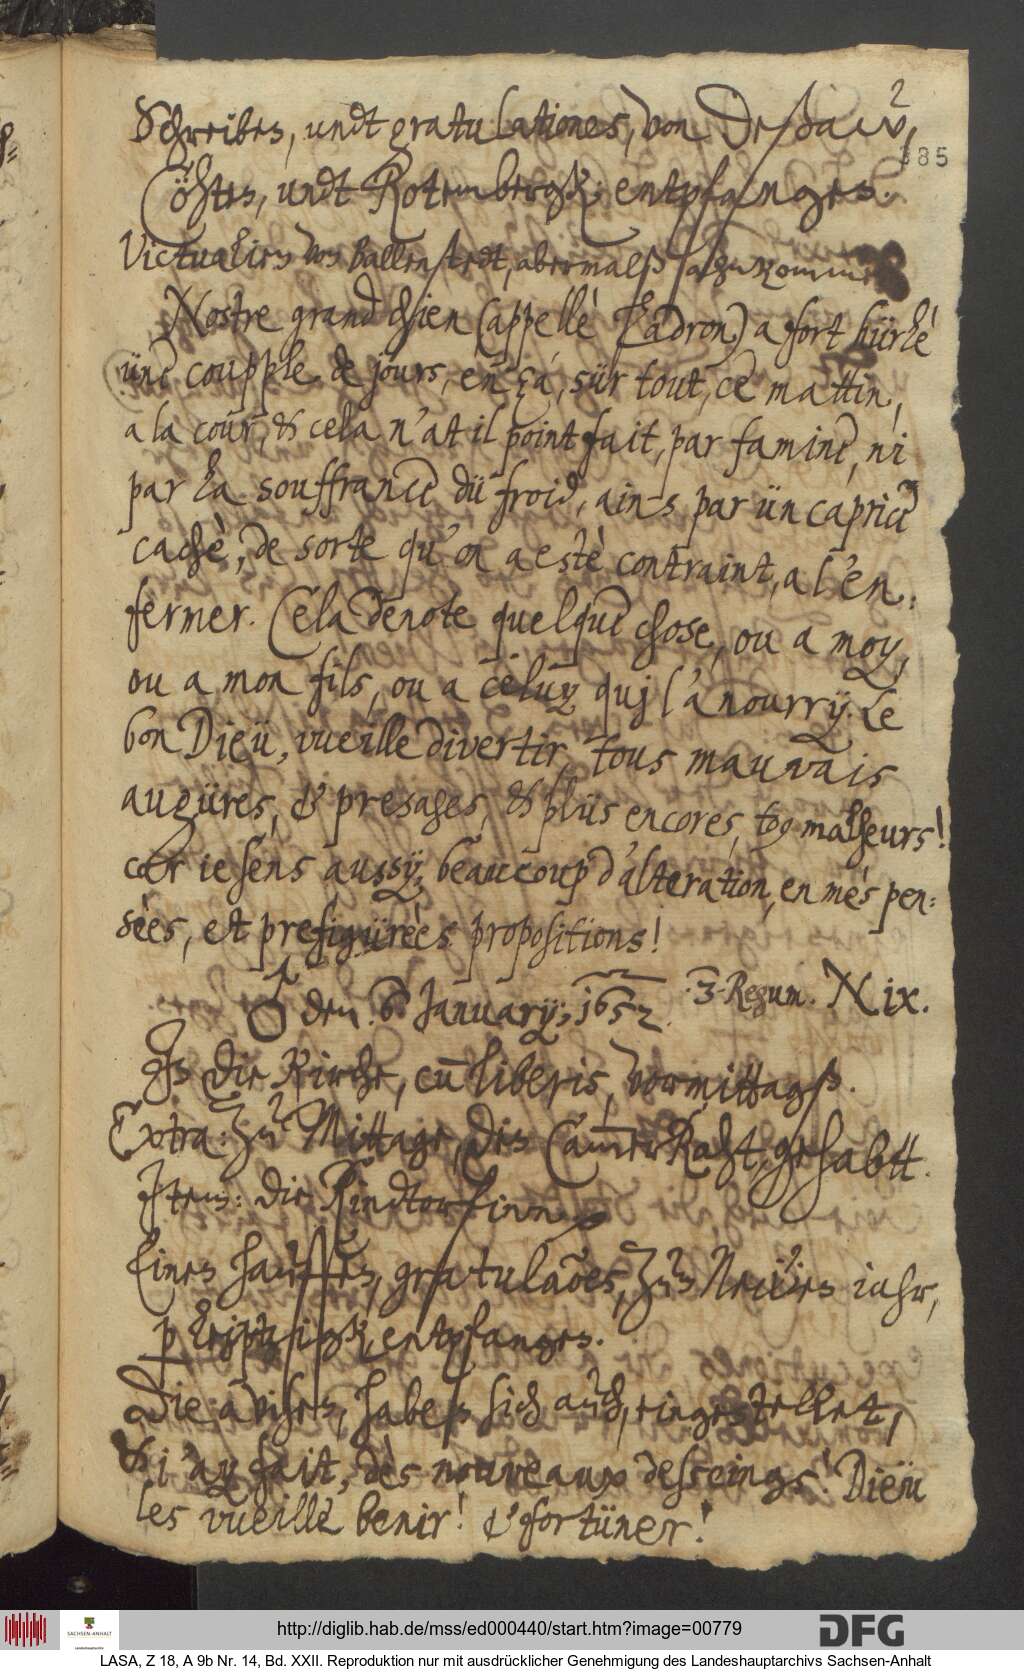 2
385
Schreiben, undt gratulationes, von Deßaw,
Cöhten, undt Rotembergk: entpfangen.
Victualien von Ballenstedt, abermalß ankommen
Nostre grand chien (appellè Ladron) a fort hürlè
üne coupple de jours, en çá, sür tout, ce mattin,
a la cour, & cela n'at il point fait, par famine, ni
par la souffrance dü froid, ains par ün caprice
cachè, de sorte qu'on a estè contraint, a l'en,
fermer. Cela denote quelque chose, ou a moy,
ou a mon fils, ou a celuy quj l'a nourrÿ. Le
bon Dieü, vueille divertir, tous mauvais
augüres, & presages, & plüs encores, tos malheurs!
car ie sens aussÿ, beaucoup d'alteration, en mes pen:
sèes, et prefigürèes propositions!
♂ den .6. Januarÿ; 1652. .3. Regum. N ix.
Jn die Kirche, cum liberis, vormittagß.
Extra: zu Mittage, den CammerRaht, gehabtt.
Jtem: die Rindtorfinn
Einen hauffen, gratulaones, zum Newen iahr,
p Leiptzigk, entpfangen.
Die avisen, haben sich auch, eingestellet,
& i'ay fait, dès nouveaux desseings! Dieu
les vueille benir! & fortüner!
http://diglib.hab.de/mss/ed000440/start.htm?image=00779
SACHSEN-ANHALT
DFG
LASA, Z 18, A 9b Nr. 14, Bd. XXII. Reproduktion nur mit ausdrücklicher Genehmigung des Landeshauptarchivs Sachsen-Anhalt